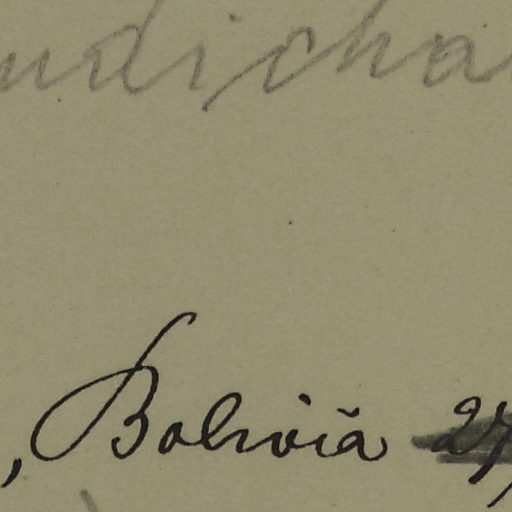 udicha
, Bolivia 27